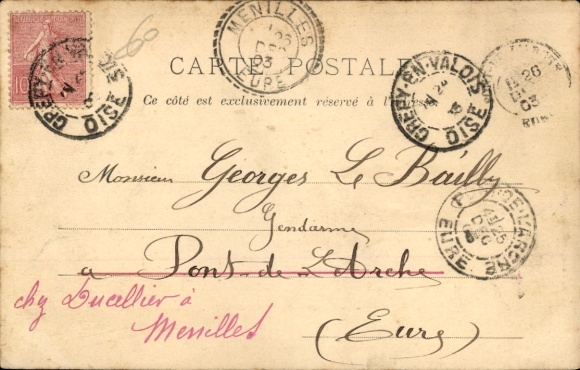 MENILLES
26
DEC
03
EURE
CREPY-EN-VALOIS
OISE
10
60
CARTE POSTALE
Ce côté est exclusivement réservé à l'adresse
CREPY-EN-VALOIS
24
OISE
26
03
Monsieur Georges Le Bailly
Gendarme
à Pont-de-l'Arche
chez Ducellier à
Menilles
(Eure)
PONT-DE-L'ARCHE
25
DEC
EURE